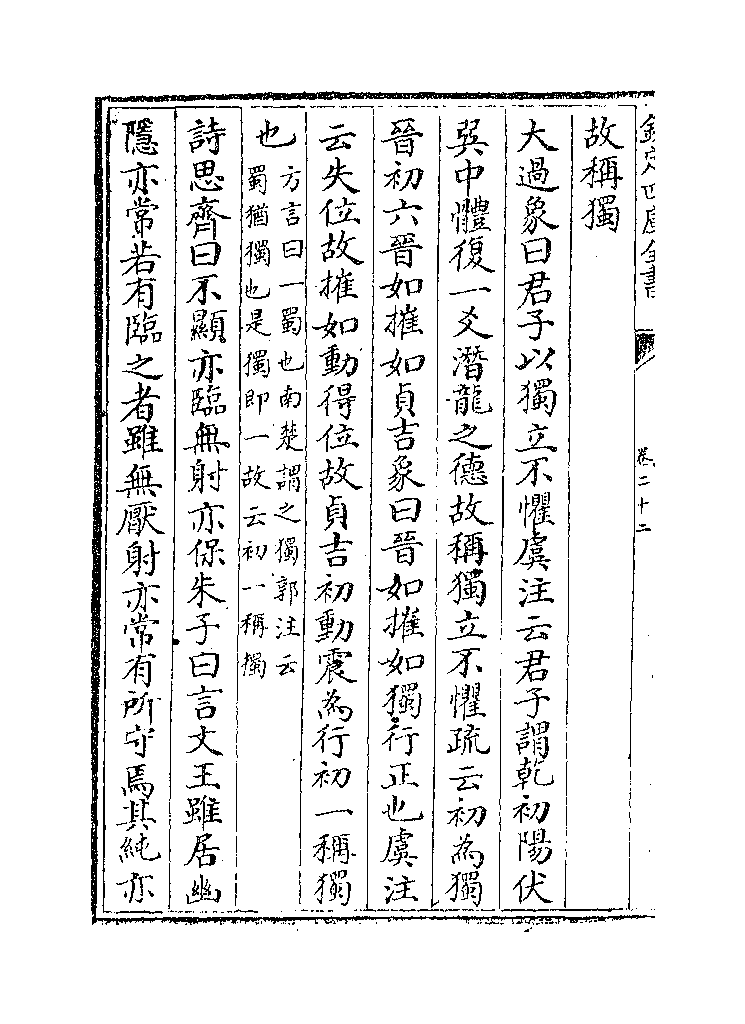 欽定四庫全書
卷二十二
故稱獨
大過象曰君子以獨立不懼虞注云君子謂乾初陽伏
巽中體復一爻潛龍之德故稱獨立不懼疏云初為獨
晉初六晉如摧如貞吉象曰晉如摧如獨行正也虞注
云失位故摧如動得位故貞吉初動震為行初一稱獨
也方言曰一蜀也南楚謂之獨郭注云
蜀猶獨也是獨即一故云初一稱獨
詩思齊曰不顯亦臨無射亦保朱子曰言文王雖居幽
隱亦常若有臨之者雖無厭射亦常有所守焉其純亦